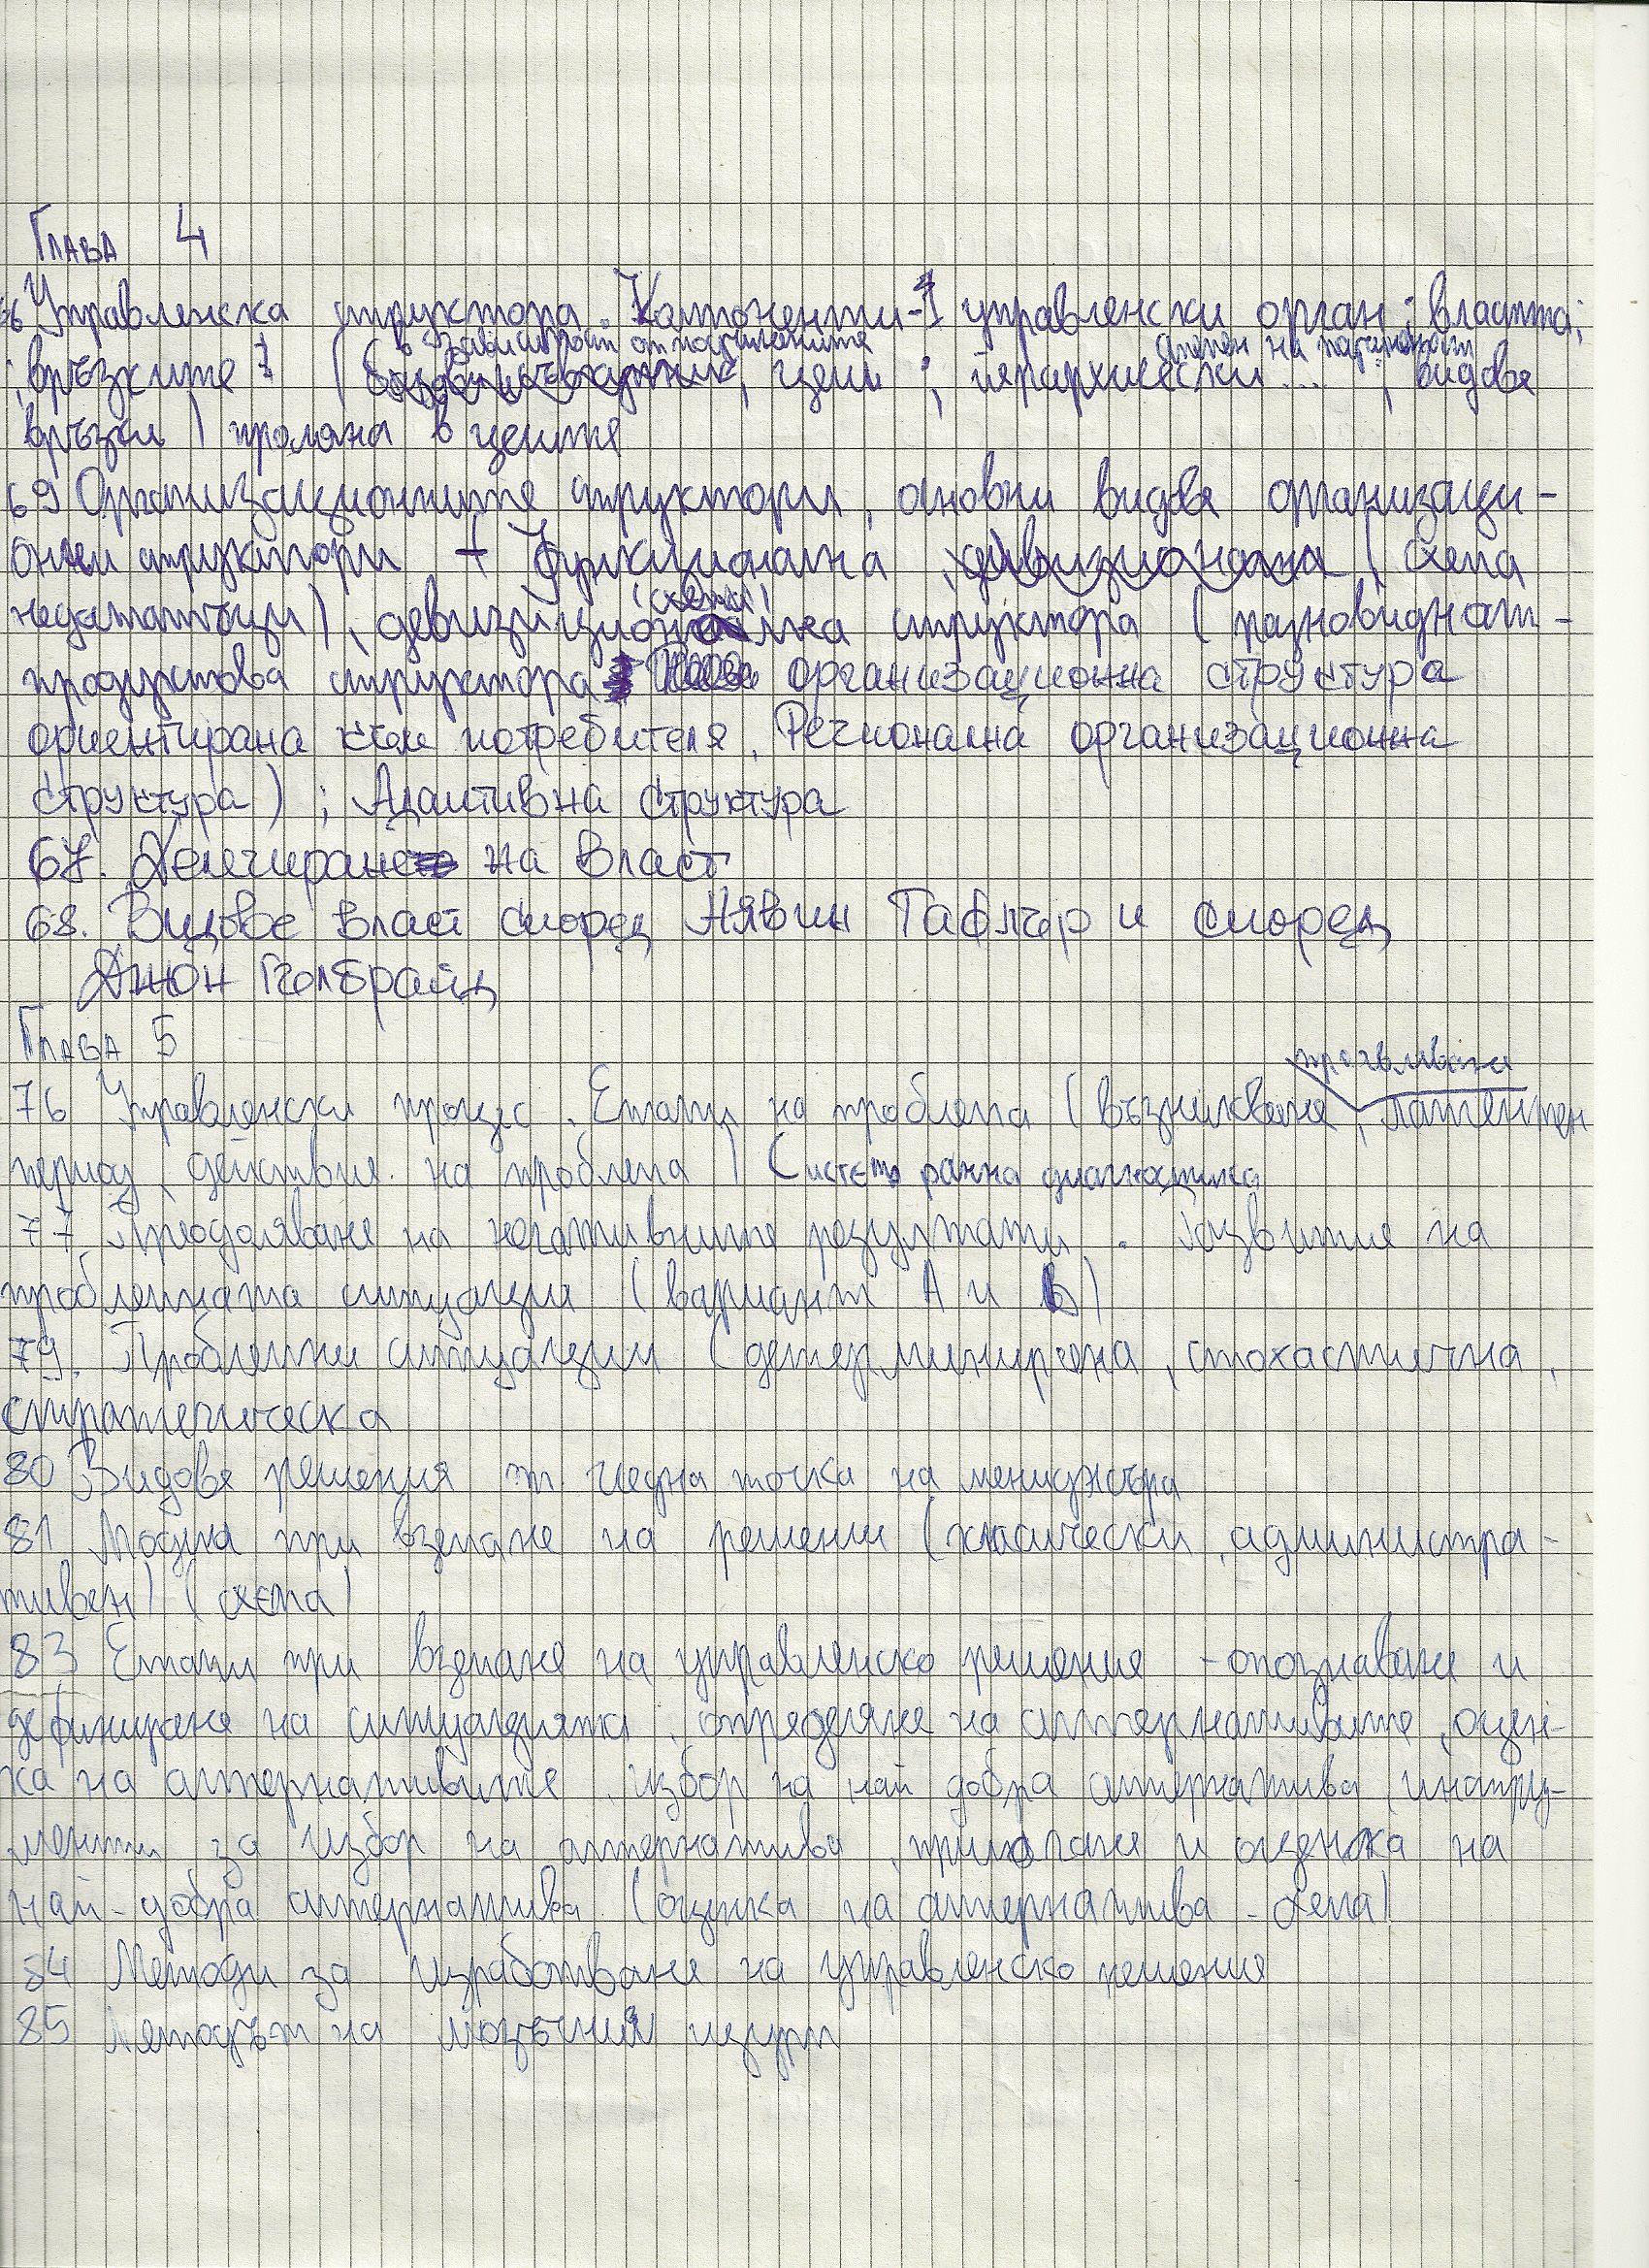 Глава 4
66 Управленска структора. Компоненти - 1 управленски орган; властта;
в зависимост от поставените
степен на
; връзките } ( цели ; йерархически... ; видове
връзки) промяна в целите
69 Организационните структори, основни видове организаци-
онни структори + Функционална, дивизионална (схема
(схема)
недостатъци), девизиционална структора (разновидност -
продуктова структора организационна структура
ориентирана към потребителя, Регионална организационна
структура) ; Адаптивна структура
67. Делегиране на власт
68. Видове власт според Нявин Тафлър и според
Джон Гълбрайд
Глава 5
проявяване
76 Управленски процес. Етапи на проблема (възникване, латентен
период, действие на проблема) Система ранна диагностика
77 Преодоляване на негативните резултати. Развитие на
проблемната ситуация (вариант А и В)
79. Проблемни ситуации (детерминирана, стохастична,
стратегическа
80 Видове решения от гледна точка на мениджъра
81 Модела при вземане на решении (класически, администра-
тивен) (схема)
83 Етапи при вземане на управленско решение - опознаване и
дефиниране на ситуацията, определяне на алтернативите, оцен-
ка на алтернативите, избор на най добра алтернатива, инстру-
менти за избор на алтернатива, прилагане и оценка на
най-добра алтернатива. (оценка на алтернатива - схема)
84 Методи за изработване на управленско решение
85 Методът на мозъчния щурм